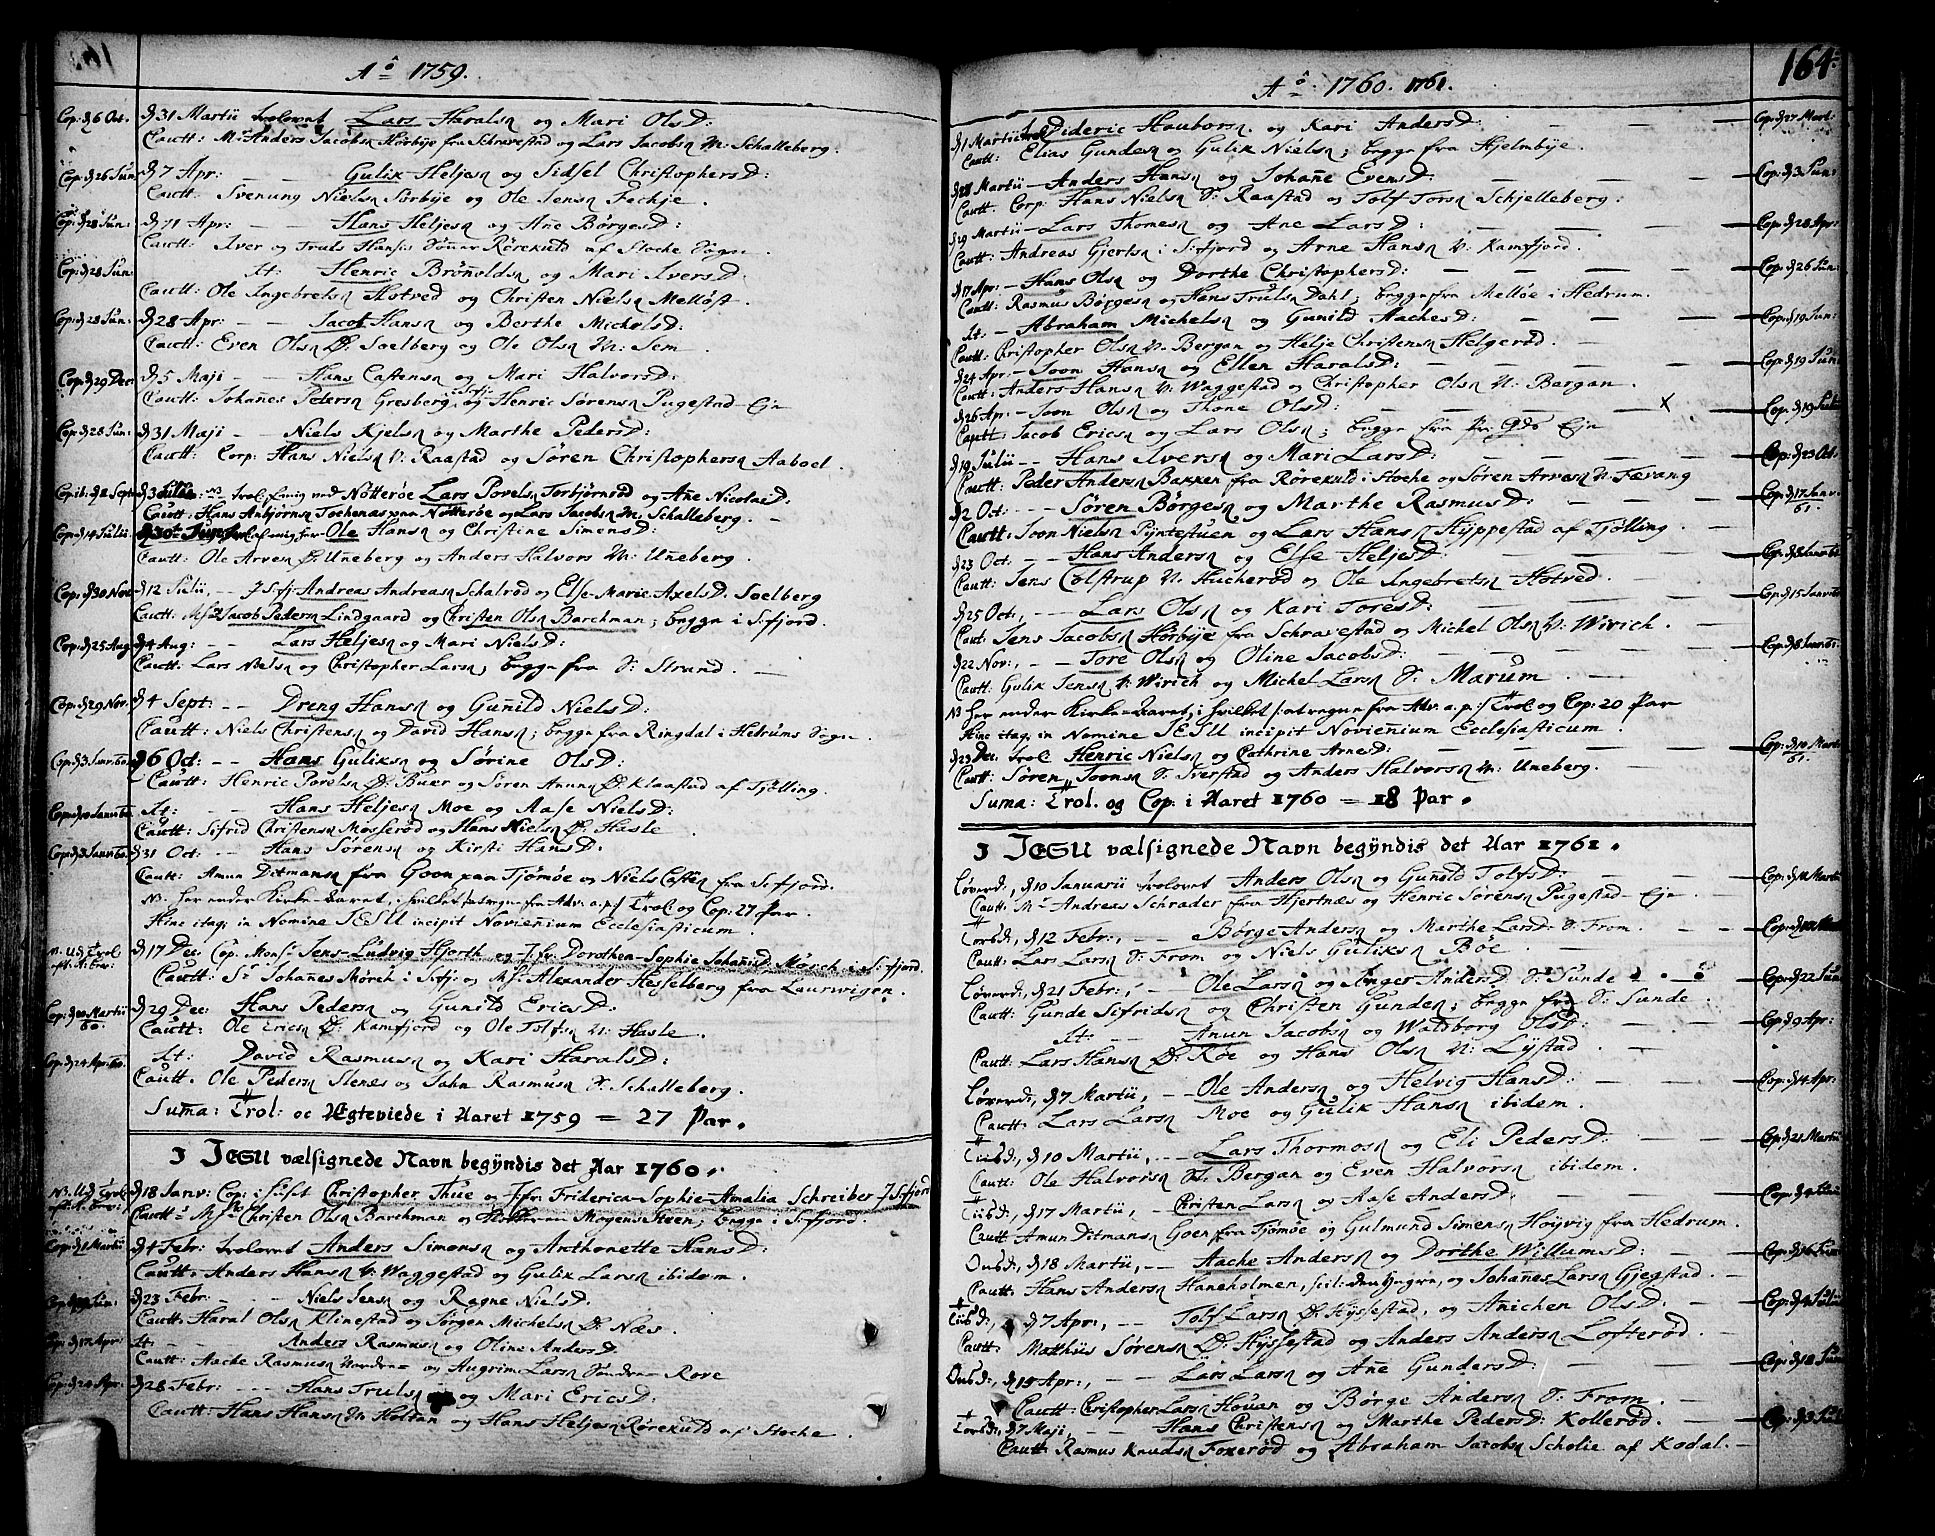 Aº 1759.
Cop: d 6 Oct. d 31 Martii trolovet Lars Haralsn og Mari OlsD:
Cautt: Mr Anders Jacobsn Hörbÿe fra Schravestad og Lars Jacobsn N: Schalleberg.
Cop: d 26 Jun: d 7 Apr: - - Gulik Heljesn og Sidsel ChristophersD:
Cautt: Svenung Nielsn Sörbÿe og Ole Jensn Fechje.
Cop: d 28 Jun: d 11 Apr: - - Hans Heljesn og Ane BörgesD:
Cautt: Iver og Truls Hansis Rörekuld af Stoche Sogn.
Cop: d 28 Jun: It: Henric Brönolds n og Mari IversD:
Cautt: Ole Ingebretsn Hotved og Christen Nielsn Melløst.
Cop: d 28 Jun: d 28 Apr: - - Jacob Hansn og Berthe MichelsD:
Cautt: Even Olsn Ø: Soelberg og Ole Olsn N: Sem.
Cop: d 29 Dec: d 5 Maji - - Hans Castensn og Mari HalvorsD:
Cautt: Johanes Pedersn Gresberg og Henric Sörensn Pugestad-Eje
Cop: d 28 Jun: d 31 Maji - - Niels Kjelsn og Marthe PedersD:
Cautt: Corp: Hans Nielsn N: Raastad og Sören Christophersn Aaboel.
Cop: d 2 Sept: d 3 Lars Povelsn Torbjörnröd og Ane NicolaiD.
Cautt: Hans Anbjörnsn paa Nötteröe og Lars Jacobsn N: Schalleberg.
Cop: d 14 Julii: Ole Hansn og Christine SimensD:
Cautt: Ole Arvesn Ø: Uneberg og Anders Halvors N: Uneberg.
Cop: d 30 Nov: d 12 Julii, - Andreas Andreasn Schalröd og Else-Marie AxelsD. Soelberg
Cautt: Jacob Pedersn Lindgaard og Christen Olsn Barchman; begge i S:fjord.
Cop: d 25 Aug: d 4 Aug: - - Lars Heljesn og Mari NielsD:
Cautt: Lars Nielsn og Christopher Larsn; begge fra S: Strand.
Cop: d 29 Nov. d 4 Sept: - - Dreng Hansn og Gunild NielsD:
Cautt: Niels Christensn og David Hansn; begge fra Ringdal i Hedrums Sogn.
Cop: d 3 Janv: 60. d 6 Oct: - - Hans Guliksn og Sörine OlsD:
Cautt: Henric Povelsn Ø: Buer og Sören Amunsn Ø: Klaastad af Tjölling.
It: - - Hans Heljesn Moe og Aase NielsD:
Cautt: Sifrid Christensn Mosseröd og Hans Nielsn Ø: Hasle
d 31 Oct: - - Hans Sörensn og Kirsti HansD.
Cautt: Amun Ditmansn fra Goen paa Tjömöe og Niels Casten fra S:fjord.
N. her ender Kirke-Aaret, i hvilket er fra Adv: a.p: Trol og Cop: 27 Par.
Hinc itaq; in Nomine JESU incipit Novienium Ecclesiasticum.
d 17 Dec: Cop. Monsr Jens-Ludvig Hjorth og Jfr Dorothea-Sophie JohanisD. Mörch i S:fjord.
Cautt: Sr Johanes Mörch i S:fj: og Alexander Hesselberg fra Laurwigen
Cop: d Martii 60. d 29 Dec: Hans Pedersn og Gunild EricsD:
Cautt: Ole Ericsn Ø: Kamfjord og Ole Tolfsn N: Hasle.
Cop: d 24 Apr: 60. It: David Rasmusn og Kari HaralsD:
Cautt. Ole Pedersn Stenes og John Rasmusn S: Schalleberg.
Suma: Trol: oc Ægteviede i Aaret 1759 = 27 Par.
I JESU vælsignede Navn begÿndis det Aar 1760.
d 18 Janv: Cop: i Huset Christopher Thue og Jfr: Friderica-Sophie-Amalia Schreiber S:fjord
Cautt: Christen Olsn Barchman og Mogens Steen; begge i S:fjord.
Cop: d Martii d 4 Febr: trolovet Anders Simonsn og Anthonette HansD:
Cautt: Anders Hansn N: Waggestad og Gulik Larsn ibidem.
d 23 Febr: - - Niels Jensn og Ragne NielsD.
Cautt: Haral Olsn Klinestad og Sörgen Michelsn Ø: Næs.
Cop: d 17 Apr: It: - - Anders Rasmusn og Oline AndersD.
Cautt: Aache Rasmusn Nordre og Augrim Larsn Sondre Rove
Cop: d 24 Apr: d 28 Febr: - - Hans Trulsn og Mari EricsD:
Cautt: Hans Hansn N: Holtan og Hans Heljesn Rörekuld af Stoche.
Aº 1760. 1761.
164.
d 1 Martii trol: Dideric Haaborsn og Kari AndersD: Cop: d 27 Mart:
Cautt: Elias Gundesn og Gulik Nielsn; begge fra Hjelmbÿe.
d 28 Martii - Anders Hansn og Johane EvensD: Cop: d 3 Jun:
Cautt. Corp: Hans Nielsn S: Raastad og Tolf Torsn Schjelleberg:
d 29 Martii - Lars Thomesn og Ane LarsD: Cop: d 28 Apr:
Cautt: Andreas Gjertsn i S:fjord og Arne Hansn N: Kamfjord.
d 17 Apr: - Hans Olsn og Dorthe ChristophersD: Cop: d 26 Jun:
Cautt: Rasmus Börgesn og Hans Trulsn Dahl; begge fra Melløe i Hedrum.
It: - Abraham Michelsn og Gunild AachesD: Cop: d 19 Jun:
Cautt: Christopher Olsn N: Bergan og Helje Christensn Helgeröd.
d 24 Apr: - Joon Hansn og Ellen HaralsD: Cop: d 19 Jun:
Cautt: Anders Hansn N: Waggestad og Christopher Olsn N: Bergan.
d 26 Ap: - Joon Olsn og Thone OlsD: x Cop: d 19 Julii
Cautt: Jacob Ericsn og Lars Olsn; begge fra Gds Eje
d 19 Julii - - Hans Iversn og Mari LarsD: Cop: d 23 Oct.
Cautt: Peder Andersn Bakken fra Rörekuld i Stoche og Sören Arvesn N: Fævang
d 2 Oct: - - - Sören Börgesn og Marthe RasmusD: Cop: d 17 Janv: 61.
Cautt: Joon Nielsn Pÿntestuen og Lars Hansn Hÿppestad af Tjölling.
d 23 Oct: - - Hans Andersn og Else HeljesD:
Cautt: Jens Tolstrup N: Hucheröd og Ole Ingebretsn Hotved.
d 25 Oct, - - Lars Olsn og Kari ToresD: Cop: d 15 Janv: 61
Caut: Jens Jacobsn Hörbÿe fra Schravestad og Michel Olsn N: Wirich.
d 22 Nov:, - - Tore Olsn og Oline JacobsD: Cop: d 8 Janv: 61
Cautt: Gulik Jensn N: Wirich og Michel Larsn S: Marum.
N. her ender Kirke-Aaret, i hvilket fra Adv. a.p: Trol og Cop: 20 Par
Hinc itaq; in Nomine JESU incipit Novienium Ecclesiasticum.
d 23 Dec: trol: Henric Nielsn og Cathrine ArneD: Cop: d Martii 61.
Cautt: Sören Joonsn S: Iverstad og Anders Halvorsn N: Uneberg.
Suma: Trol. og Cop: i Aaret 1760 = 18 Par.
I JESU vælsignede Navn begÿndis det Aar 1761.
Löverd:, d 10 Januarii trolovet Anders Olsn og Gunild TolfsD: Cop: d Martii
Cautt: Mr Andreas Schrader fra Hjertnæs og Henric Sörensn Pugestad-Eje
Torsd:, d 12 Febr:, - - Börge Andersn og Marthe LarsD: S: From.
Cautt: Lars Larsn S: From og Niels Guliksn Böe
Löverd:, d 21 Febr:, - Ole Larsn og Inger AndersD S: Sunde Cop: d 22 Jun:
Cautt: Gunde Sifridsn og Christen Gundesn; begge fra S: Sunde.
It: - - Amun Jacobsn og Waldborg OlsD: Cop: d 9 Apr:
Cautt: Lars Hansn Ø: Röe og Hans Olsn N: Lÿstad.
Löverd:, d 7 Martii, - - Ole Andersn og Helvig HansD: Cop: d 4 Apr:
Cautt: Lars Larsn Moe og Gulik Hansn ibidem.
Tiisd:, d 10 Martii, - - Lars Thormosn og Eli PedersD: Cop: d 21 Martii
Cautt: Ole Halvorsn N: Bergan og Even Halvorsn ibidem.
Tiisd:, d 17 Martii, - Christen Larsn og Aase AndersD:
Cautt: Amun Ditmansn Goen fra Tjömöe og Gulmund Simensn Höÿvig fra Hedrum.
Onsd:, d 18 Martii, - - Aache Andersn og Dorthe WillumsD: Cop: d 16 Jun:
Cautt: Hans Andersn Haneholmen, den Yngre, og Johanes Larsn Gjegstad.
Tiisd:, d 7 Apr:, - - Tolf Larsn Ø: Hÿssestad, og Anichen OlsD: Cop: d 4 Julii
Cautt: Matthiis Sörensn Ø: Hÿssestad og Anders Andersn Lofteröd.
Onsd:, d 15 Apr:, - - Lars Larsn og Ane GundersD: Cop: d 18 Jun:
Cautt: Christopher Larsn Houan og Börge Andersn S: From.
Torsd:, d 7 Maji, - - Hans Christensn og Marthe PedersD: Kolleröd.
Cautt: Rasmus Knudsn Foxeröd og Abraham Jacobsn Scholie af Kodal.